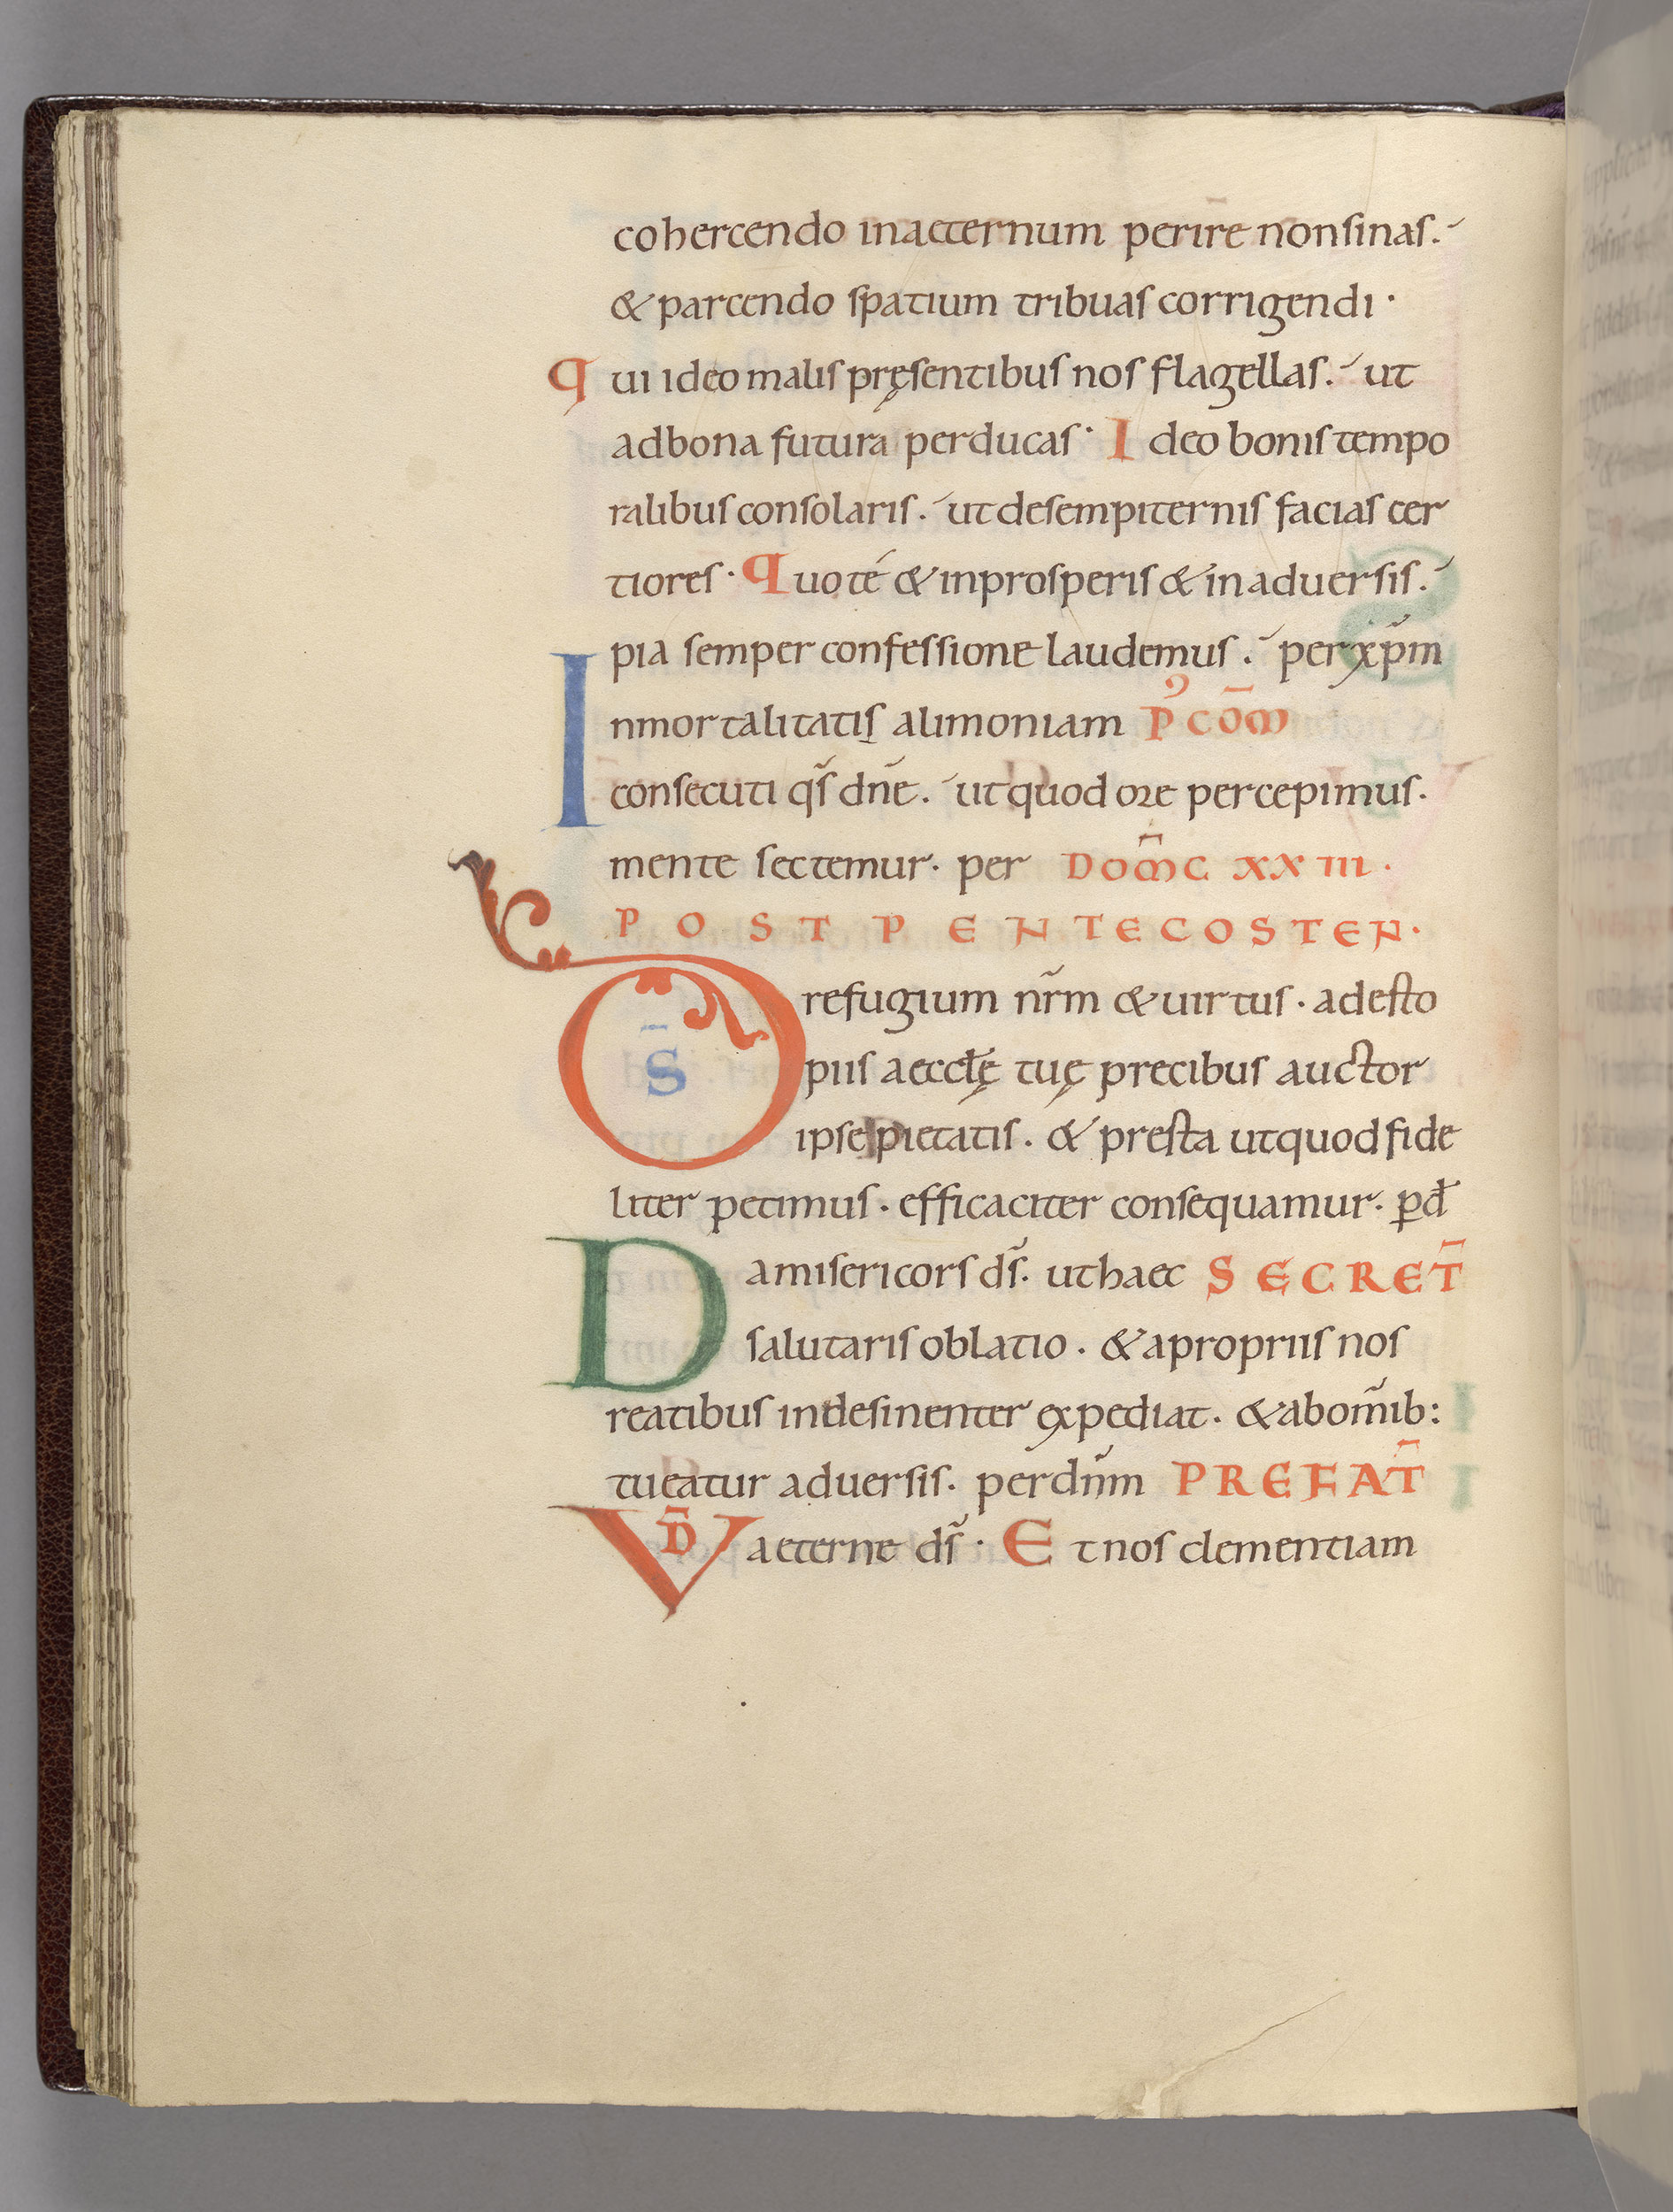 cohercendo inaeternum perire non sinas.
& parcendo spatium tribuas corrigendi·
qui ideo malis pręsentibus nos flagellas. ut
ad bona futura perducas· Ideo bonis tempo
ralibus consolaris. ut desempiternis facias cer
tiores· Quo té & inprosperis & in aduersis.
pia semper confessione laudemus. per xp̄m
Inmortalitatis alimoniam P̓ COM̄
consecuti qs̄ dn̄e. ut quod ore percepimus.
mente sectemur· per DOM̄C XXIII·
POST PENTECOSTEN·
DS̄ refugium nr̄m & uirtus· adesto
piis aeccłę tuę precibus auctor
ipse pietatis. & presta utquod fide
liter petimus· efficaciter consequamur· ꝑ đ
Da misericors ds̄. ut haec SECRET̄
salutaris oblatio· & apropriis nos
reatibus indesinenter expediat· & abom̄ib:
tueatur aduersis. per dn̄m PREFAT̄
VD̄ aeterne ds̄· Et nos clementiam